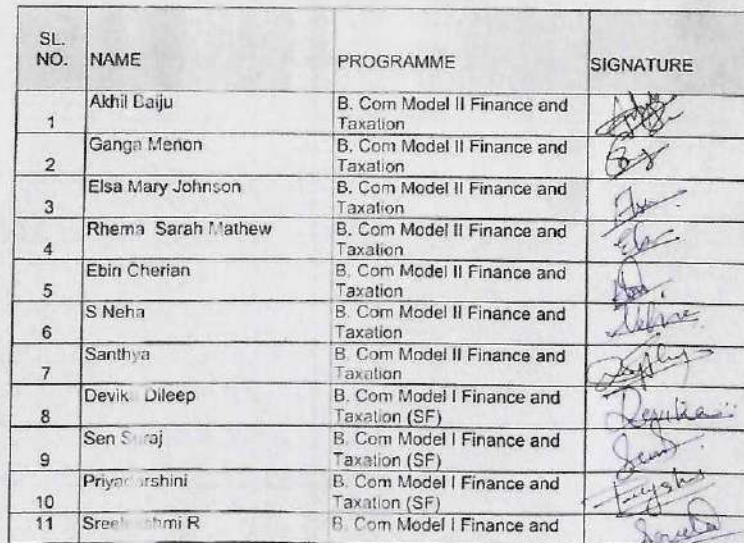 SL. NO. NAME PROGRAMME SIGNATURE
1 Akhil Baiju B. Com Model II Finance and Taxation
2 Ganga Menon B. Com Model II Finance and Taxation
3 Elsa Mary Johnson B. Com Model II Finance and Taxation
4 Rhema Sarah Mathew B. Com Model II Finance and Taxation
5 Ebin Cherian B. Com Model II Finance and Taxation
6 S Neha B. Com Model II Finance and Taxation
7 Santhya B. Com Model II Finance and Taxation
8 Devika Dileep B. Com Model I Finance and Taxation (SF) Devika
9 Sen Suraj B. Com Model I Finance and Taxation (SF)
10 Priyadarshini B. Com Model I Finance and Taxation (SF)
11 Sreelekshmi R B. Com Model I Finance and